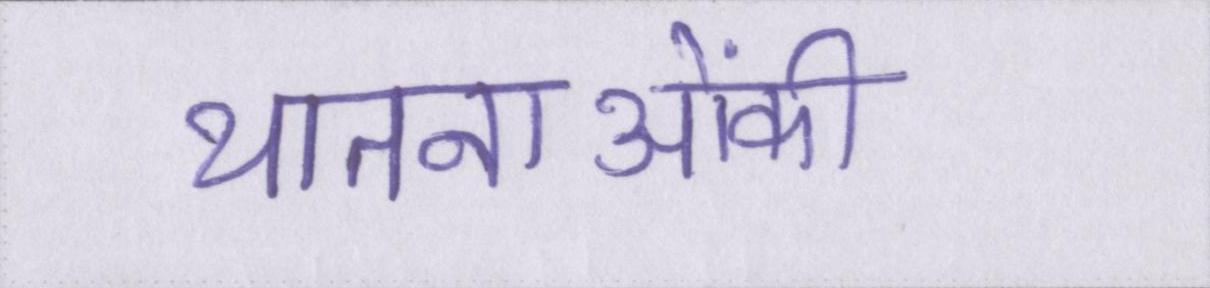 यातनाओंकी